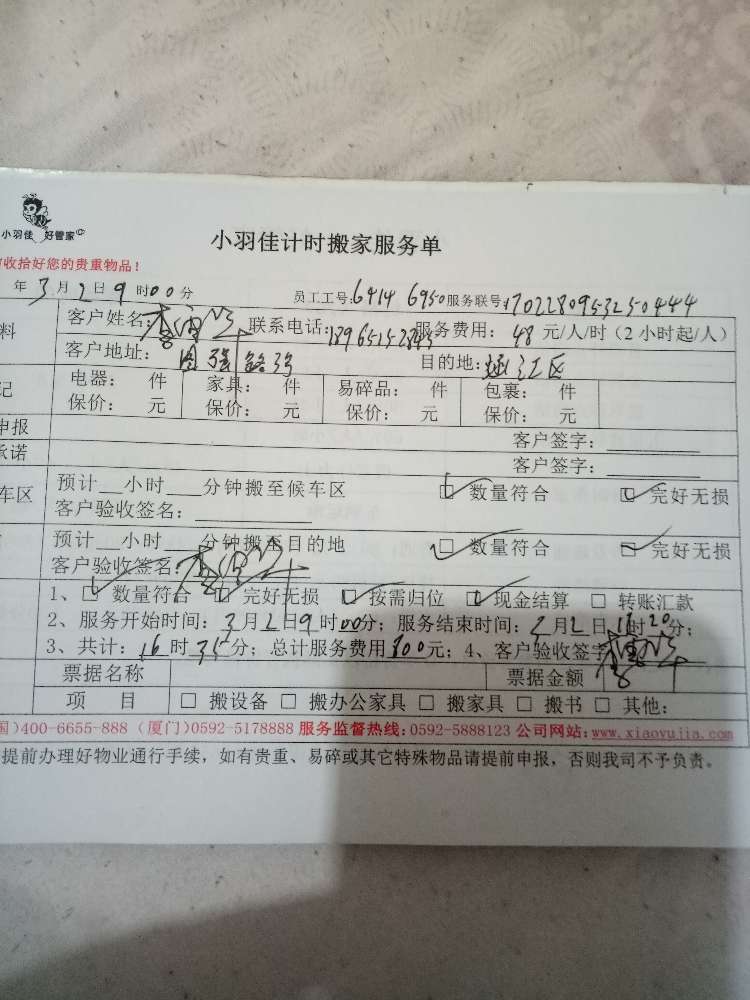 小羽佳 好管家
小羽佳计时搬家服务单
收拾好您的贵重物品！
年3月2日9时00分 员工工号：6414 6950 服务联号：170228095325044４
料 客户姓名： 联系电话： 服务费用：48元/人/时（2小时起/人）
客户地址： 目的地：
记 电器： 件 家具： 件 易碎品： 件 包裹： 件
保价： 元 保价： 元 保价： 元 保价： 元
申报 客户签字：
承诺 客户签字：
车区 预计 小时 分钟搬至候车区 数量符合 完好无损
客户验收签名：
预计 小时 分钟搬至目的地 数量符合 完好无损
客户验收签名：
1、 数量符合 完好无损 按需归位 现金结算 转账汇款
2、服务开始时间：3月2日9时00分；服务结束时间：3月2日 时20分；
3、共计：16时35分；总计服务费用800元；4、客户验收签字
票据名称 票据金额
项 目 搬设备 搬办公家具 搬家具 搬书 其他：
国）400-6655-888（厦门）0592-5178888 服务监督热线：0592-5888123 公司网站：www.xiaoyujia.com
提前办理好物业通行手续，如有贵重、易碎或其它特殊物品请提前申报，否则我司不予负责。